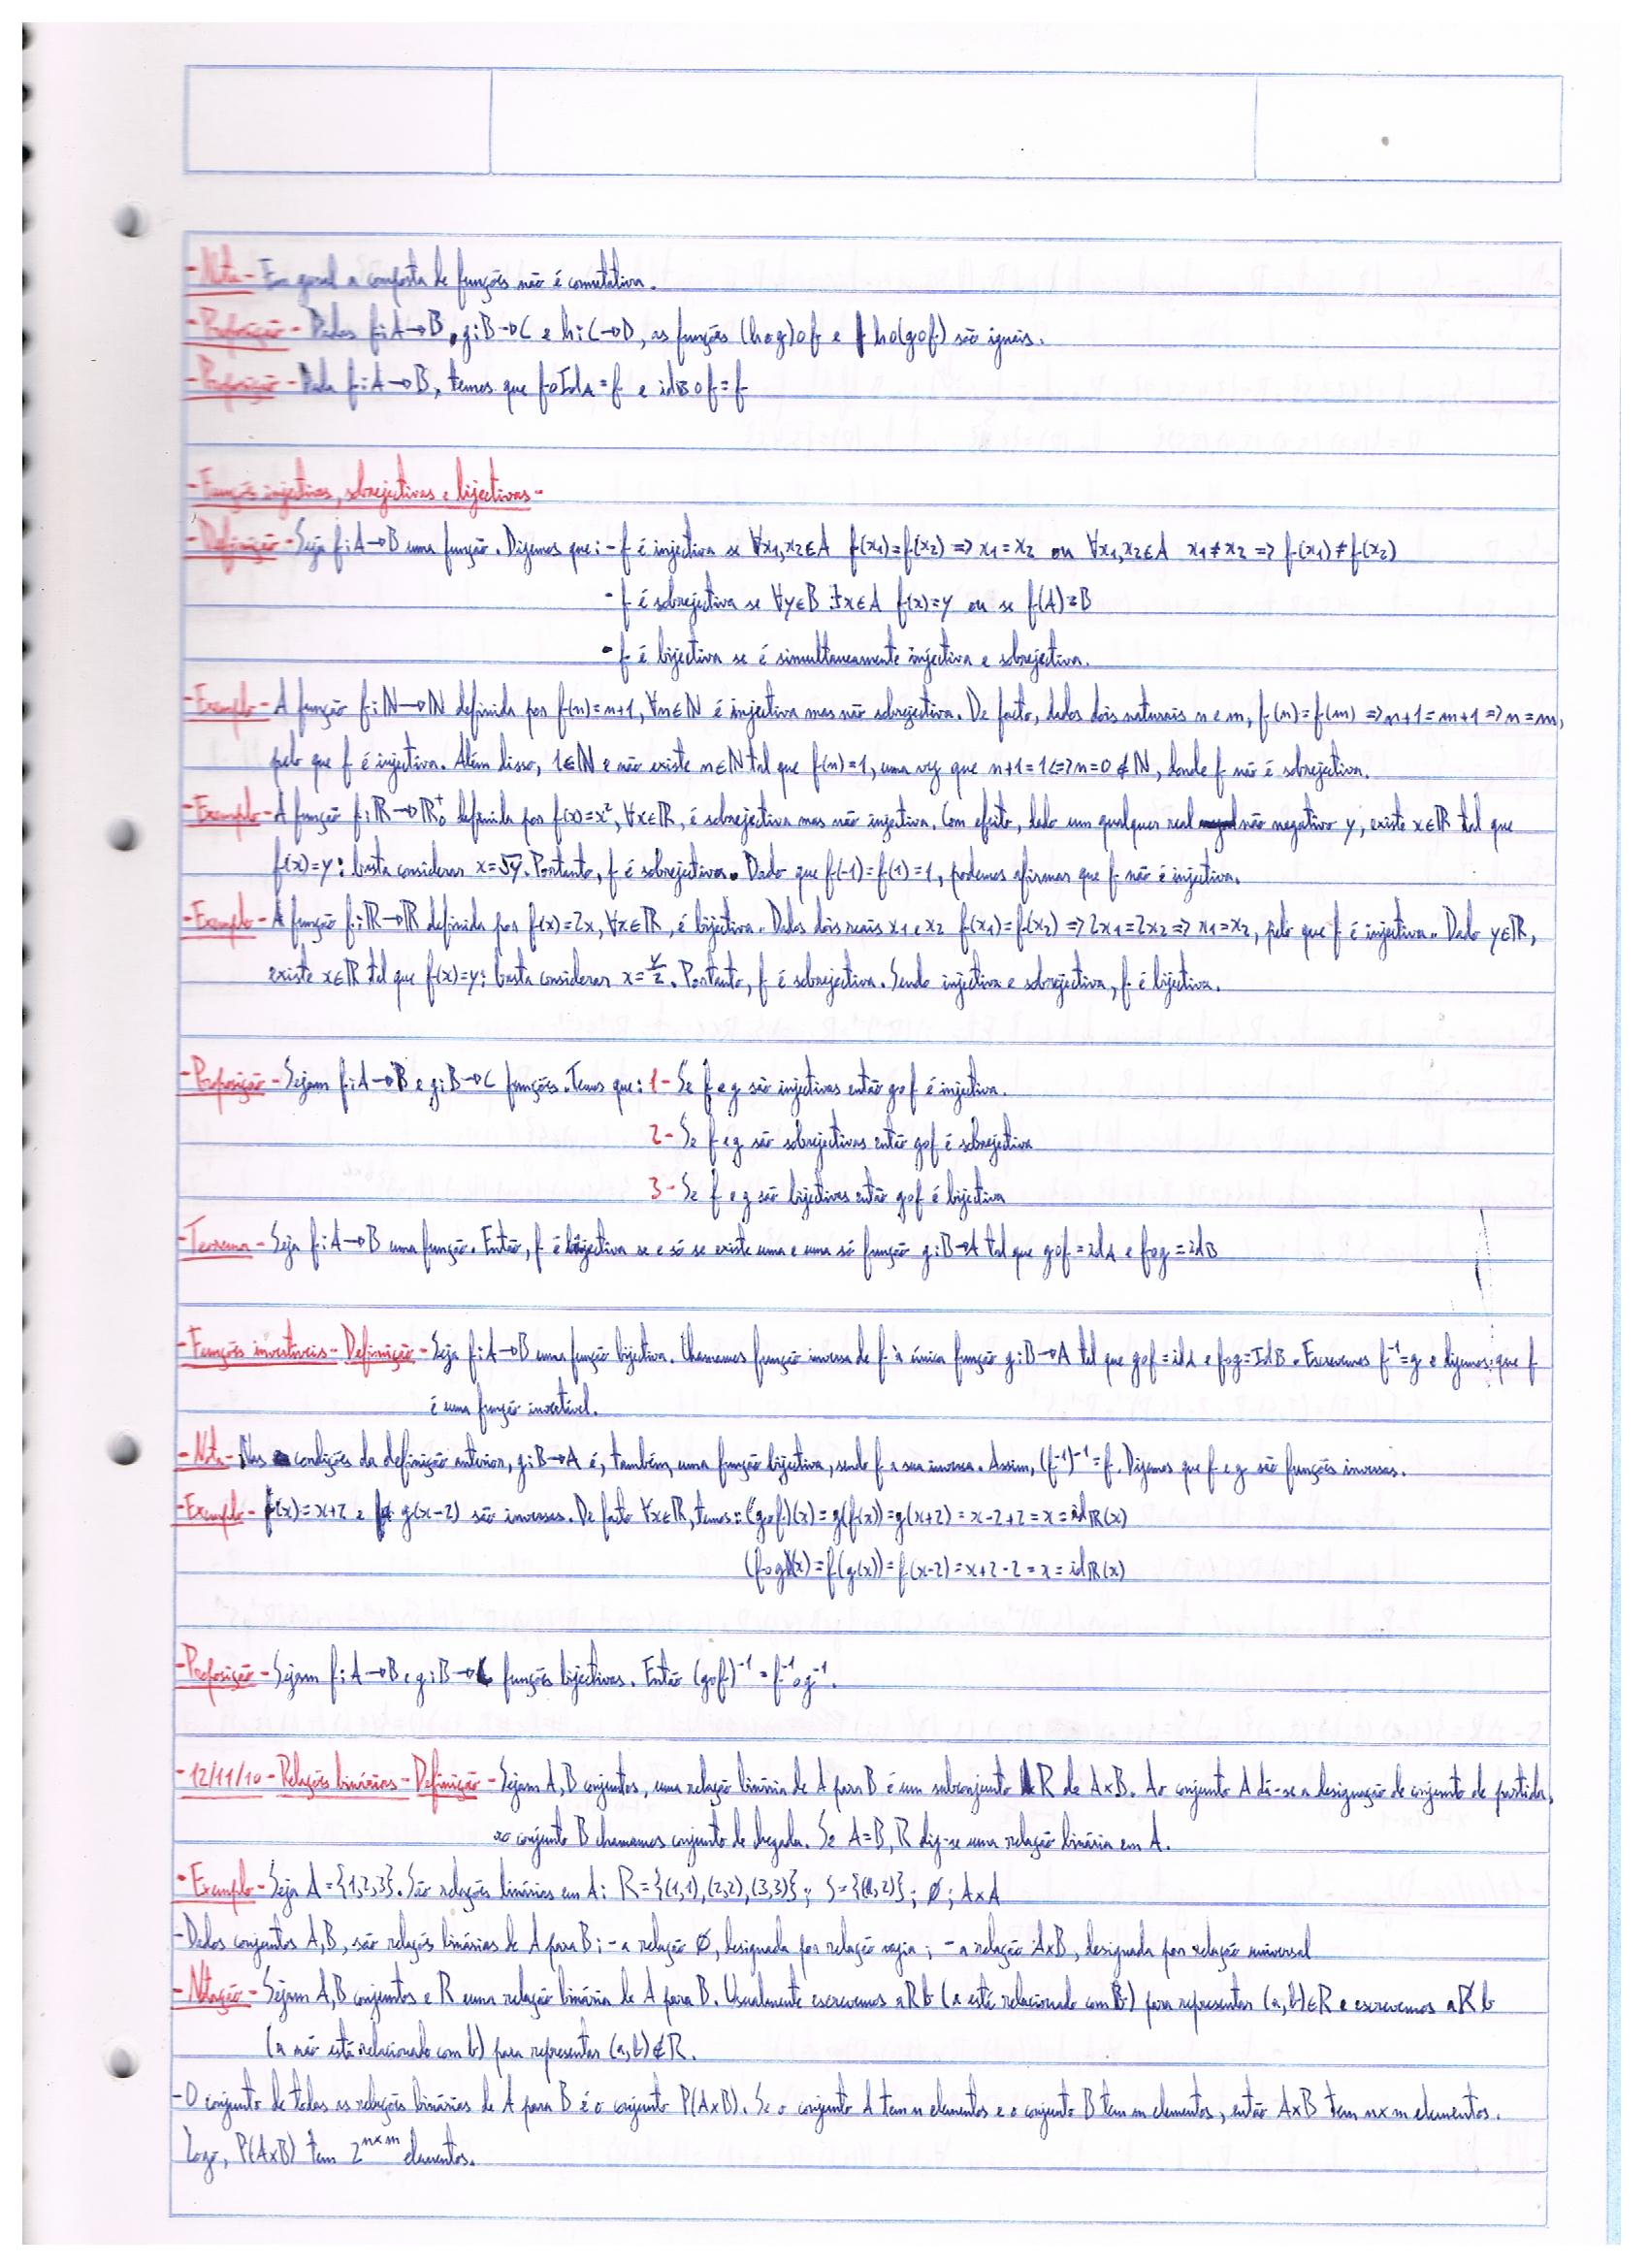 -Nota- Em geral a composta de funções não é comutativa.
-Proposição- Dadas f:A→B, g:B→C e h:C→D, as funções (hog)of e ho(gof) são iguais.
-Proposição- Dada f:A→B, temos que foIdA=f e idBof=f
-Funções injectivas, sobrejectivas e bijectivas-
-Definição- Seja f:A→B uma função. Dizemos que: - f é injectiva se ∀x1,x2∈A f(x1)=f(x2) => x1=x2 ou ∀x1,x2∈A x1≠x2 => f(x1)≠f(x2)
- f é sobrejectiva se ∀y∈B ∃x∈A f(x)=y ou se f(A)=B
- f é bijectiva se é simultaneamente injectiva e sobrejectiva.
-Exemplo- A função f:ℕ→ℕ definida por f(n)=n+1, ∀n∈ℕ é injectiva mas não sobrejectiva. De facto, dados dois naturais n e m, f(n)=f(m) => n+1=m+1 => n=m,
pelo que f é injectiva. Além disso, 1∈ℕ e não existe n∈ℕ tal que f(n)=1, uma vez que n+1=1<=>n=0∉ℕ, donde f não é sobrejectiva.
-Exemplo- A função f:ℝ→ℝ₀⁺ definida por f(x)=x², ∀x∈ℝ, é sobrejectiva mas não injectiva. Com efeito, dado um qualquer real não negativo y, existe x∈ℝ tal que
f(x)=y: basta considerar x=√y. Portanto, f é sobrejectiva. Dado que f(-1)=f(1)=1, podemos afirmar que f não é injectiva.
-Exemplo- A função f:ℝ→ℝ definida por f(x)=2x, ∀x∈ℝ, é bijectiva. Dados dois reais x1 e x2 f(x1)=f(x2) => 2x1=2x2 => x1=x2, pelo que f é injectiva. Dado y∈ℝ,
existe x∈ℝ tal que f(x)=y: basta considerar x=y/2. Portanto, f é sobrejectiva. Sendo injectiva e sobrejectiva, f é bijectiva.
-Proposição- Sejam f:A→B e g:B→C funções. Temos que: 1- Se f e g são injectivas então gof é injectiva.
2- Se f e g são sobrejectivas então gof é sobrejectiva
3- Se f e g são bijectivas então gof é bijectiva
-Teorema- Seja f:A→B uma função. Então, f é bijectiva se e só se existe uma e uma só função g:B→A tal que gof=idA e fog=idB
-Funções invertíveis- Definição- Seja f:A→B uma função bijectiva. Chamamos função inversa de f à única função g:B→A tal que gof=idA e fog=IdB. Escrevemos f⁻¹=g e dizemos que f
é uma função invertível.
-Nota- Nas condições da definição anterior, g:B→A é, também, uma função bijectiva, sendo f a sua inversa. Assim, (f⁻¹)⁻¹=f. Dizemos que f e g são funções inversas.
-Exemplo- f(x)=x+2 e g(x-2) são inversas. De facto ∀x∈ℝ, temos: (gof)(x)=g(f(x))=g(x+2)=x-2+2=x=idℝ(x)
(fog)(x)=f(g(x))=f(x-2)=x+2-2=x=idℝ(x)
-Proposição- Sejam f:A→B e g:B→C funções bijectivas. Então (gof)⁻¹=f⁻¹og⁻¹.
-12/11/10-Relações binárias-Definição- Sejam A,B conjuntos, uma relação binária de A para B é um subconjunto R de A×B. Ao conjunto A dá-se a designação de conjunto de partida,
ao conjunto B chamamos conjunto de chegada. Se A=B, R diz-se uma relação binária em A.
-Exemplo- Seja A={1,2,3}. São relações binárias em A: R={(1,1),(2,2),(3,3)}; S={(1,2)}; ∅; A×A
-Dados conjuntos A,B, são relações binárias de A para B: - a relação ∅, designada por relação vazia; - a relação A×B, designada por relação universal
-Notação- Sejam A,B conjuntos e R uma relação binária de A para B. Usualmente escrevemos aRb (a está relacionado com b) para representar (a,b)∈R e escrevemos aR̸b
(a não está relacionado com b) para representar (a,b)∉R.
-O conjunto de todas as relações binárias de A para B é o conjunto P(A×B). Se o conjunto A tem n elementos e o conjunto B tem m elementos, então A×B tem n×m elementos.
Logo, P(A×B) tem 2ⁿˣᵐ elementos.